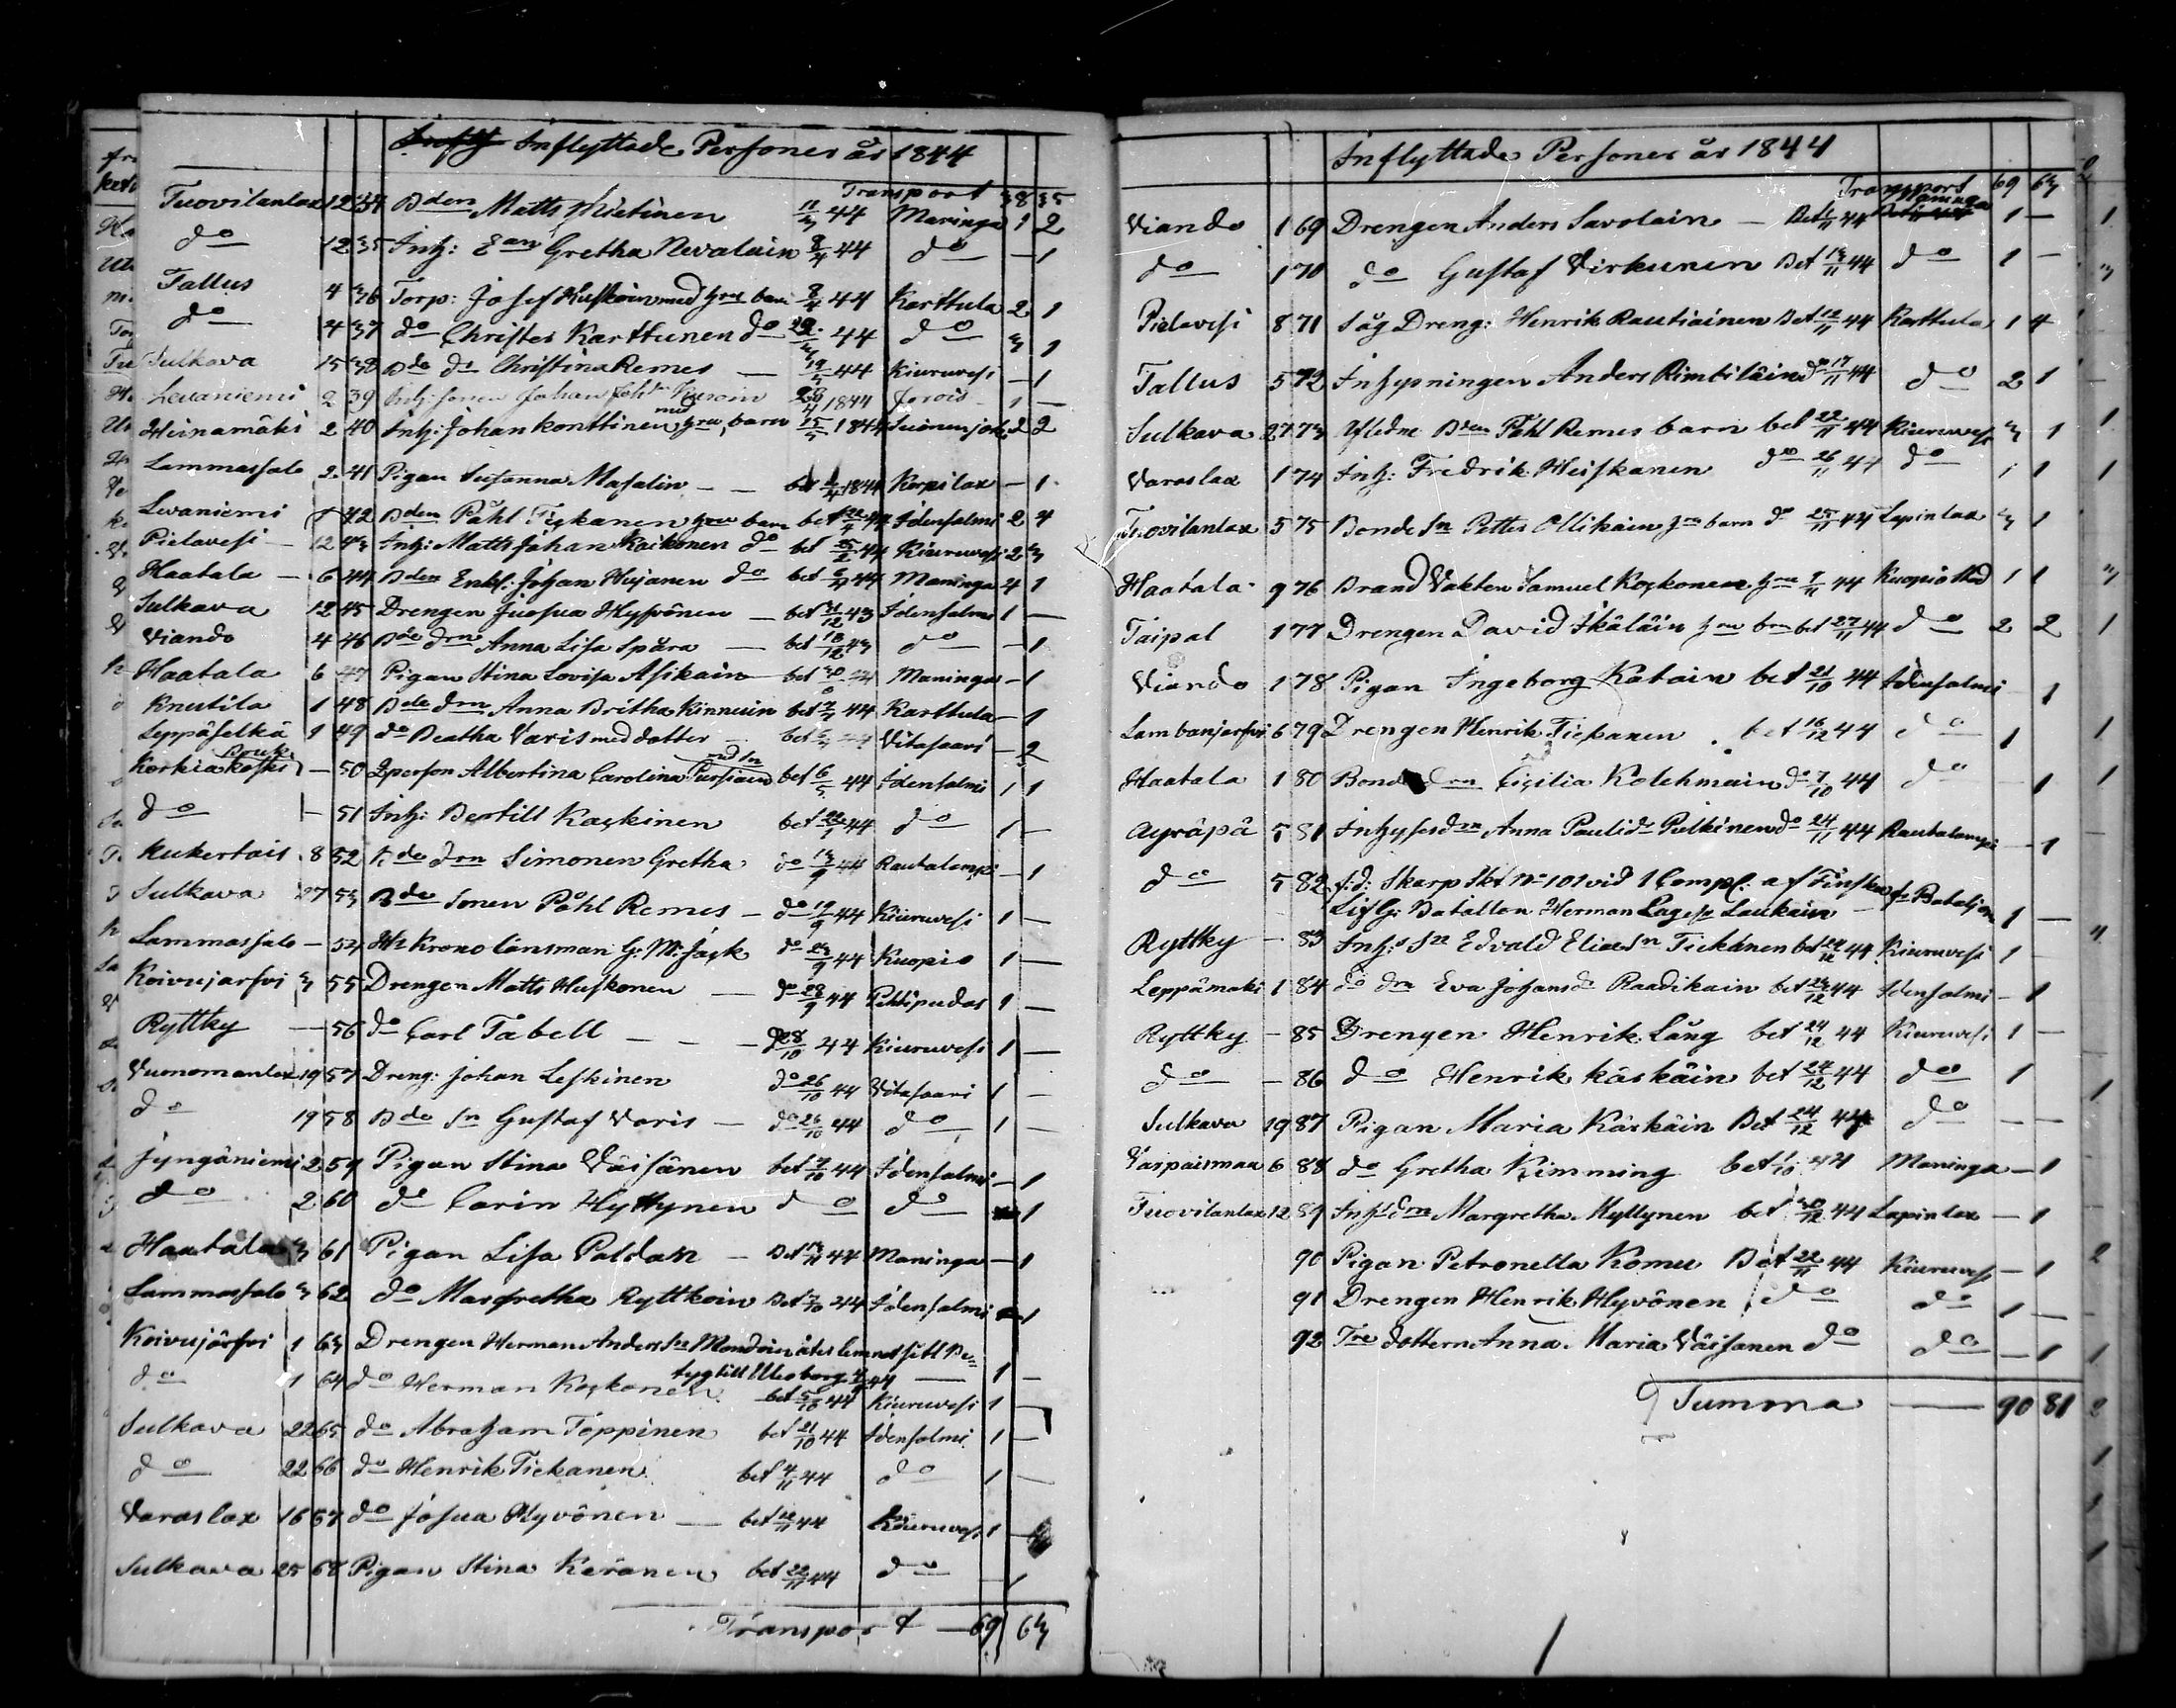 Inflyttade Personer år 1844
Transport 38 35
Tuovilanlax 12 34 Bden Matts Mietinen 44 Maninga 1 2
do 12 35 Inh: Ean Gretha Nevalain 8/4 44 do — 1
Tallus 4 36 Torp: Josef Huskoin med hru barn 8/4 44 Karttula 2 1
do 4 37 do Christer Karttunen do 44 do 3 1
Sulkava 15 38 Bde dr Christina Remes — 44 Kiuruvesi — 1
Levaniemi 2 39 Inh: sonen Johan Joh: 1844 Jorois 1 —
Heinamäki 2 40 Inh: Johan Konttinen med hru, barn 1844 Suonenjoki 2 2
Lammassalo 2 41 Pigan Susanna Masalin — — bet 1844 Korpilax — 1
Levaniemi 42 Bden Påhl Tickanen hru barn bet 44 Idensalmi 2 4
Pielavesi 12 43 Inh: Matts Johan Kaikonen do bet 44 Kiuruvesi 2 3
Haatala — 6 44 Bden Enkl: Johan Hujanen do bet 44 Maninga 4 1
Sulkava 12 45 Drengen Juosua Hyvönen — bet 31/12 43 Idensalmi 1 —
Viando 4 46 Bde drn Anna Lisa Spåra — bet 18/12 43 do — 1
Haatala 6 47 Pigan Stina Lovisa Asikain bet 44 Maninga — 1
Knutila 1 48 Bde drn Anna Britha Kinnuin bet 44 Karttula — 1
Leppäselkä 1 49 do Beatha Varis med dotter — bet 44 Vitasaari — 2
Korkiakoski Bruk — 50 Qperson Albertina Carolina Pursiain med sn bet 6/5 44 Idensalmi 1 1
do — 51 Inh: Bertill Kaskinen bet 44 do 1 —
Kukertais 8 52 Bde drn Simonen Gretha do 44 Rautalampi — 1
Sulkava 27 53 Bde Sonen Påhl Remes — do 19/9 44 Kiuruvesi 1 —
Lammassalo — 54 Hr Krono länsman G: M: Jack do 23/9 44 Kuopio 1 —
Koivujarfvi 3 55 Drengen Matts Huskonen — do 28/9 44 Pihtipudas 1 —
Ryttky — 56 do Carl Tabell — — — do 28/10 44 Kiuruvesi 1 —
Vuonomanlax 19 57 Dreng: Johan Leskinen do 26/10 44 Vitasaari 1 —
do 19 58 Bde Sn Gustaf Varis — do 26/10 44 do 1 —
Jyngäniemi 2 59 Pigan Stina Väisänen bet 7/10 44 Idensalmi — 1
do 2 60 do Carin Hyttynen do do 1
Haatala 3 61 Pigan Lisa Paldan — Bet 44 Maninga — 1
Lammassalo 3 62 do Margretha Ryttkoin Bet 7/10 44 Idensalmi — 1
Koivujärfvi 1 63 Drengen Herman Anders Sn Mondoin återlemnat sitt Be=
tyg till Uleoborg 44 — 1 —
do 1 64 do Herman Koskonen bet 5/10 44 Kiuruvesi 1 —
Sulkava 22 65 do Abraham Toppinen bet 21/10 44 Idensalmi 1 —
do 22 66 do Henrik Tickanen bet 4/11 44 do 1 —
Varaslax 16 67 do Josua Hyvönen — bet 44 Kiuruvesi 1 —
Sulkava 25 68 Pigan Stina Keränen bet 22/11 44 do — 1
Transport — 69 63
Inflyttade Personer år 1844
Transport 69 63
Viando 1 69 Drengen Anders Savolain — Bet 44 Maninga 1 —
do 1 70 do Gustaf Virkunen Bet 13/11 44 do 1 —
Pielavesi 8 71 Såg Dreng: Henrik Rautiainen Bet 12/11 44 Karttula 1 4
Tallus 5 72 Inhysningen Anders Rimbiläin do 17/11 44 do 2 1
Sulkava 27 73 Afledne Bden Påhl Remes barn bet 22/11 44 Kiuruvesi 3 1
Varaslax 1 74 Inh: Fredrik Heiskanen do 26/11 44 do 1 1
Tuovilanlax 5 75 Bonde Sn Petter Ollikain hru barn do 25/11 44 Lapinlax 3 1
Haatala 9 76 Brand Vakten Samuel Koskonen hru 9/11 44 Kuopio Stad 1 1
Taipal 1 77 Drengen David Ikäläin hru brn bet 27/11 44 do 2 2
Viando 1 78 Pigan Ingeborg Katain bet 21/10 44 Idensalmi 1
Lambanjarfvi 6 79 Drengen Henrik Tickanen bet 16/12 44 do 1
Haatala 1 80 Bonde drn Cicilia Kolehmain do 7/10 44 do 1
Ayräpä 5 81 Inhyses drn Anna Paulid: Pulkinen do 24/11 44 Rautalampi — 1
do 5 82 f:d: Skarp Skt No 101 vid 1 Comp: af Finska
Lif G: Batallon Herman Lages Laukain — fr Bataljon 1 —
Ryttky — 83 Inh: Sn Edvald Elias Sn Tickänen bet 44 Kiuruvesi 1 —
Leppämaki 1 84 do drn Eva Johans dr Raadikain bet 44 Idensalmi — 1
Ryttky — 85 Drengen Henrik Lång bet 24/12 44 Kiuruvesi 1 —
do — 86 do Henrik Käskäin bet 24/12 44 do 1
Sulkava 19 87 Pigan Maria Käskäin Bet 24/12 44 do — —
Varpaismaa 6 88 do Gretha Kimming bet 44 Maninga — 1
Tuovilanlax 12 89 Inhs drn Margretha Myllynen bet 30/12 44 Lapinlax — 1
90 Pigan Petronella Komu Bet 22/11 44 Kiuruvesi — 1
91 Drengen Henrik Hyvönen do do 1 —
92 Tre dottern Anna Maria Väisanen do do — 1
Summa — 90 81